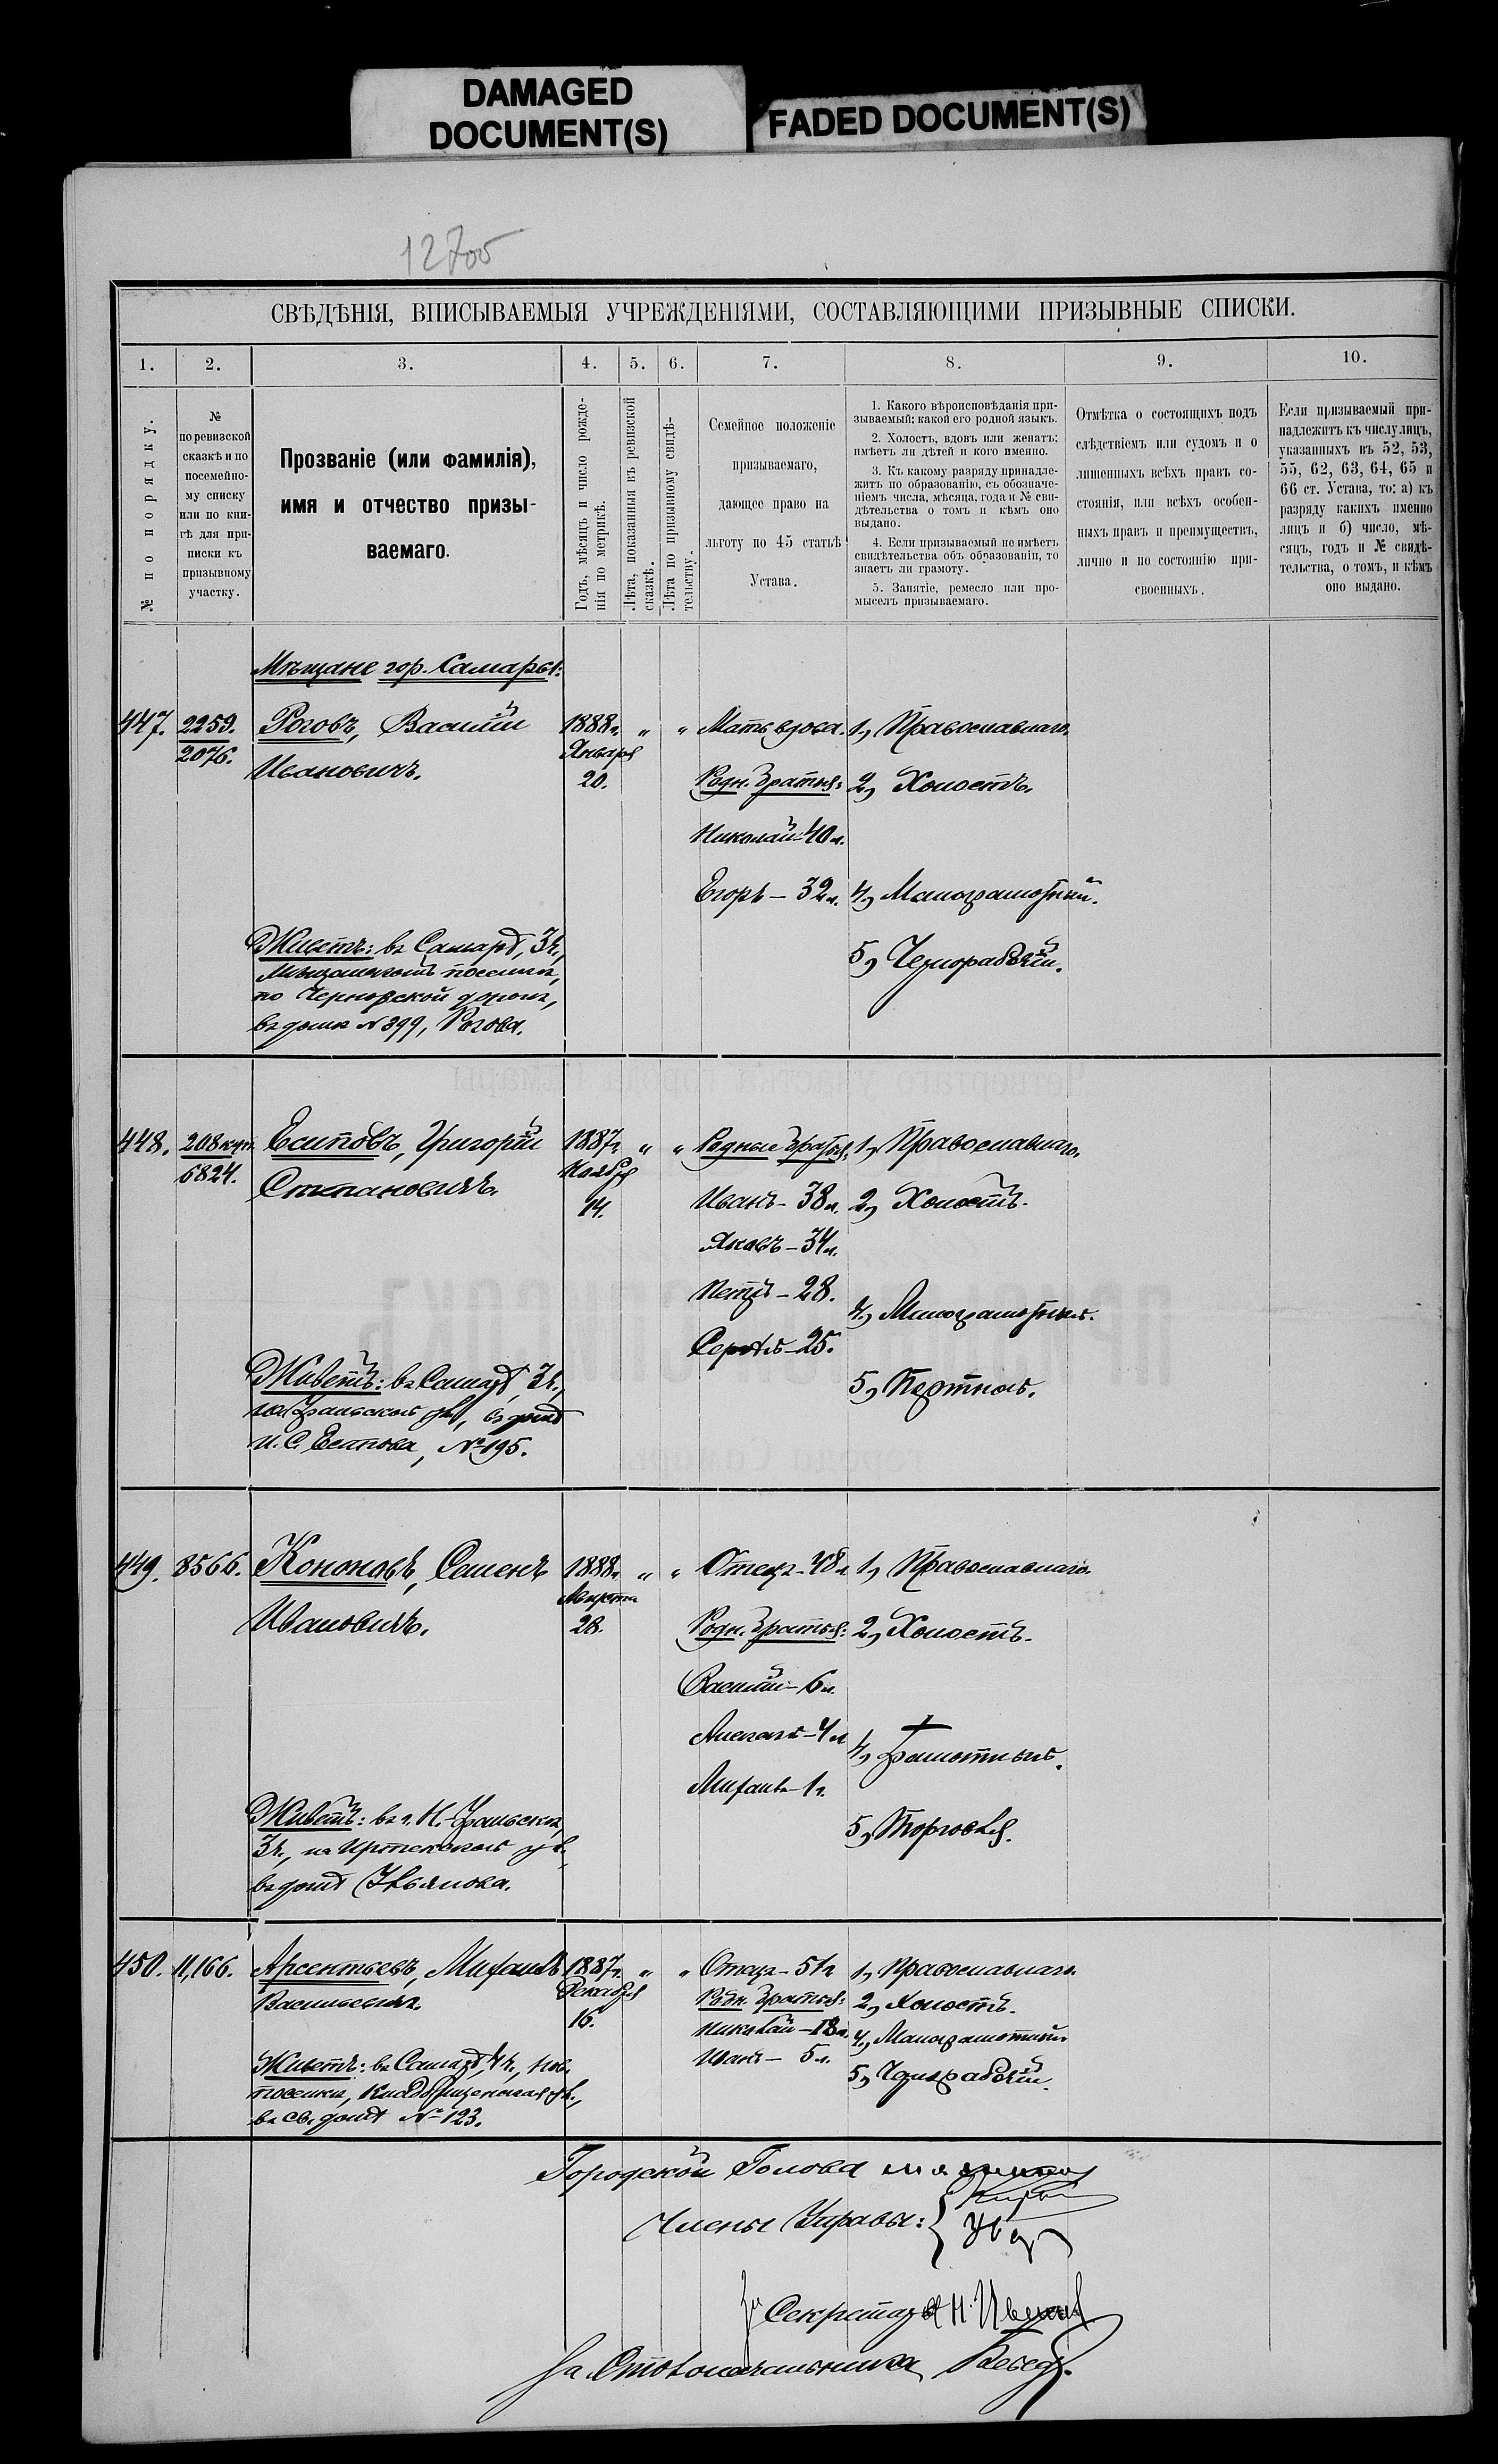 DAMAGED
DOCUMENT(S)
FADED DOCUMENT(S)
12700
СВѢДѢНІЯ, ВПИСЫВАЕМЫЯ УЧРЕЖДЕНІЯМИ, СОСТАВЛЯЮЩИМИ ПРИЗЫВНЫЕ СПИСКИ.
1. 2. 3. 4. 5. 6. 7. 8. 9. 10.
№ по порядку.
№
по ревизской
сказкѣ и по
посемейно-
му списку
или по кни-
гѣ для при-
писки къ
призывному
участку.
Прозваніе (или фамилія),
имя и отчество призы-
ваемаго.
Годъ, мѣсяцъ и число рожде-
нія по метрикѣ.
Лѣта, показанныя въ ревизской
сказкѣ.
Лѣта по призывному свидѣ-
тельству.
Семейное положеніе
призываемаго,
дающее право на
льготу по 45 статьѣ
Устава.
1. Какого вѣроисповѣданія при-
зываемый; какой его родной языкъ.
2. Холостъ, вдовъ или женатъ;
имѣетъ ли дѣтей и кого именно.
3. Къ какому разряду принадле-
житъ по образованію, съ обозначе-
ніемъ числа, мѣсяца, года и № сви-
дѣтельства о томъ и кѣмъ оно
выдано.
4. Если призываемый не имѣетъ
свидѣтельства объ образованіи, то
знаетъ ли грамоту.
5. Занятіе, ремесло или про-
мыселъ призываемаго.
Отмѣтка о состоящихъ подъ
слѣдствіемъ или судомъ и о
лишенныхъ всѣхъ правъ со-
стоянія, или всѣхъ особен-
ныхъ правъ и преимуществъ,
лично и по состоянію при-
своенныхъ.
Если призываемый при-
надлежитъ къ числу лицъ,
указанныхъ въ 52, 53,
55, 62, 63, 64, 65 и
66 ст. Устава, то: а) къ
разряду какихъ именно
лицъ и б) число, мѣ-
сяцъ, годъ и № свидѣ-
тельства, о томъ, и кѣмъ
оно выдано.
Мѣщане гор. Самары:
447. 2259. Роговъ, Василій 1888г. " " Мать вдова. 1, Православнаго.
2076. Ивановичъ. Января
20. Родн. братья: 2, Холостъ.
Николай-40л.
Егоръ-32л. 4, Малограмотный.
Живетъ: въ Самарѣ, 3ч., 5, Чернорабочій.
Мѣщанскій поселокъ,
по Черновской дороге,
въ доме №399, Рогова.
448. 208 куп. Есиповъ, Григорій 1887г. " " Родные братья: 1, Православнаго.
6824. Степановичъ. Ноября
14. Иванъ-38л. 2, Холостъ.
Яковъ-34л.
Петръ-28.
4, Малограмотный.
Сергѣй-25.
Живетъ: въ Самарѣ, 3ч., 5, Портной.
на Уральской ул., въ домѣ
И. С. Есипова, №195.
449. 8566. Кононовъ, Семенъ 1888г. " " Отецъ-48л. 1, Православнаго.
Ивановичъ. Марта
28. Родн. братья: 2, Холостъ.
Василій-6л.
Алексѣй-4л.
4, Грамотный.
Михаилъ-1г.
Живетъ: въ г. Н.-Уральскѣ, 5, Торговля.
3ч., на Иртекской ул.,
въ домѣ
450. 11,166. Арсентьевъ, Михаилъ 1887г. " " Отецъ-51г. 1, Православнаго.
Васильевичъ. Декабря
16. Родн. братья: 2, Холостъ.
Николай-18л. 4, Малограмотный.
Живетъ: въ Самарѣ, 4ч., Нов. Иванъ-5л. 5, Чернорабочій.
поселокъ, Кладбищенская ул.,
въ св. домѣ №123.
Городской Голова
Члены Управы:
За Секретаря
За Столоначальника